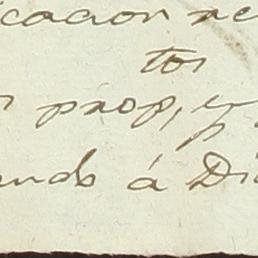 icacion re
tos
s prop, y
ando á Di